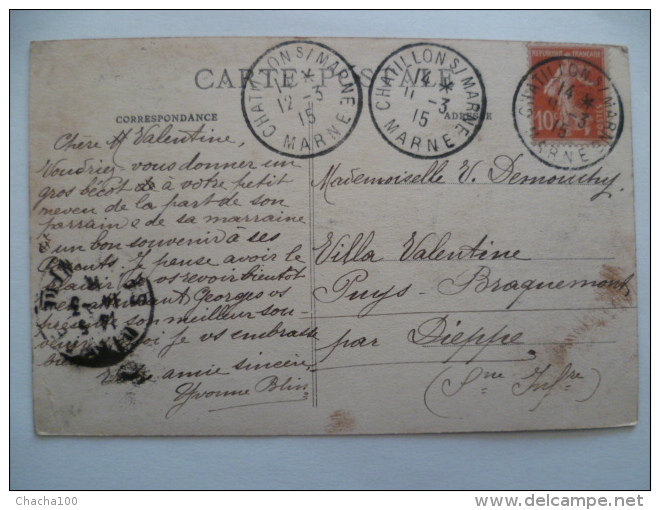 CARTE POSTALE
CORRESPONDANCE
ADRESSE
CHATILLON S/ MARNE
12 -3
15
MARNE
CHATILLON S/ MARNE
14 *
11 -3
15
MARNE
REPUBLIQUE FRANÇAISE
10c
POSTES
CHATILLON S/ MARNE
14 *
11 -3
15
MARNE
Chère Valentine,
Voudriez-vous donner un
gros bécot à votre petit
neveu de la part de son
parrain & de sa marraine
& un bon souvenir à ses
Parents. Je pense avoir le
plaisir de vs revoir bientôt
En attendant Georges vs
son meilleur sou-
je vs embrasse
amie sincère,
Yvonne Blin
Mademoiselle V. Demouchy
Villa Valentine
Puys-Braquemont
par Dieppe
(Sne Infre)
Chacha100
www.delcampe.net